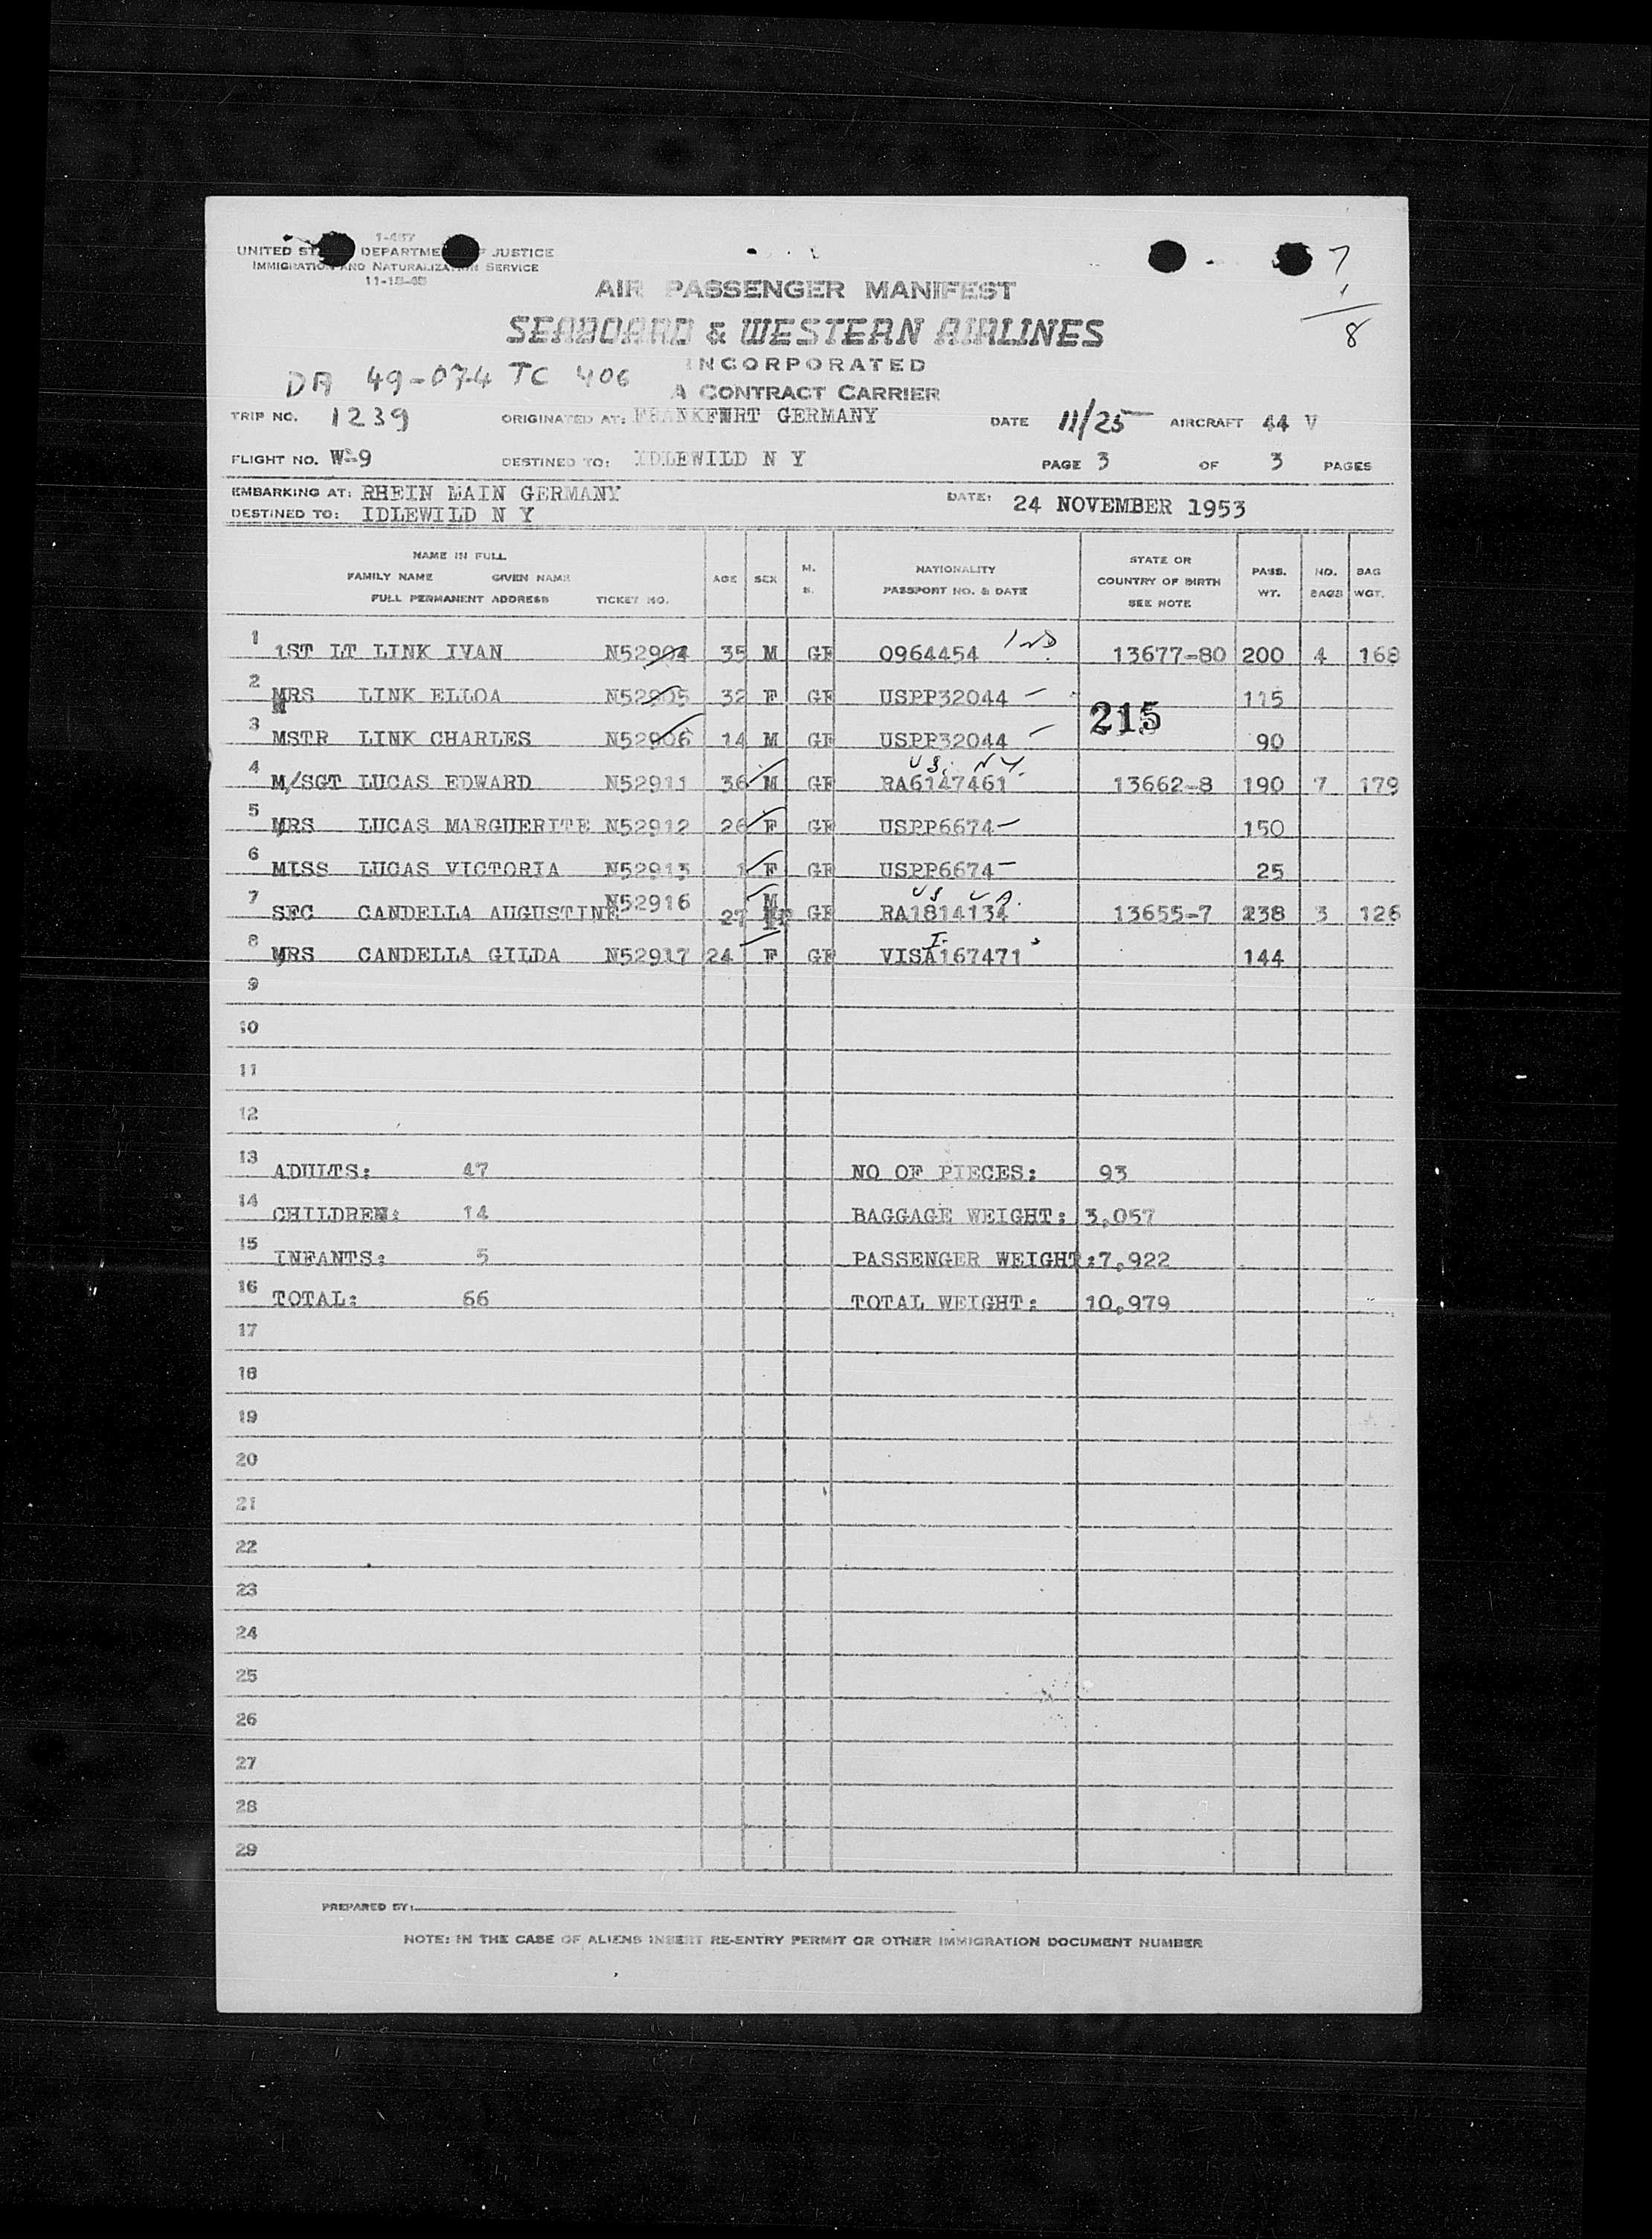 1-467
UNITED STATES DEPARTMENT OF JUSTICE
IMMIGRATION AND NATURALIZATION SERVICE
11-15-45
7
1
8
AIR PASSENGER MANIFEST
SEABOARD & WESTERN AIRLINES
INCORPORATED
DA 49-074 TC 406 A CONTRACT CARRIER
TRIP NO. 1239 ORIGINATED AT: FRANKFURT GERMANY DATE 11/25 AIRCRAFT 44 V
FLIGHT NO. W-9 DESTINED TO: IDLEWILD N Y PAGE 3 OF 3 PAGES
EMBARKING AT: RHEIN MAIN GERMANY DATE: 24 NOVEMBER 1953
DESTINED TO: IDLEWILD N Y
NAME IN FULL
FAMILY NAME GIVEN NAME
FULL PERMANENT ADDRESS TICKET NO. AGE SEX M. S. NATIONALITY PASSPORT NO. & DATE STATE OR COUNTRY OF BIRTH SEE NOTE PASS. WT. NO. BAGS BAG WGT.
1 1ST LT LINK IVAN N52904 35 M GE 0964454 IND 13677-80 200 4 168
2 MRS LINK ELLOA N52905 32 F GE USPP32044 115
215
3 MSTR LINK CHARLES N52906 14 M GE USPP32044 90
US. N.Y.
4 M/SGT LUCAS EDWARD N52911 36 M GE RA6147461 13662-8 190 7 179
5 MRS LUCAS MARGUERITE N52912 26 F GE USPP6674 150
6 MISS LUCAS VICTORIA N52913 1 F GE USPP6674 25
US
7 SFC CANDELLA AUGUSTINE N52916 27 M GE RA1814134 13655-7 238 3 126
I.
8 MRS CANDELLA GILDA N52917 24 F GE VISA167471 144
9
10
11
12
13 ADULTS: 47 NO OF PIECES: 93
14 CHILDREN: 14 BAGGAGE WEIGHT: 3,057
15 INFANTS: 5 PASSENGER WEIGHT:7,922
16 TOTAL: 66 TOTAL WEIGHT: 10,979
17
18
19
20
21
22
23
24
25
26
27
28
29
PREPARED BY:
NOTE: IN THE CASE OF ALIENS INSERT RE-ENTRY PERMIT OR OTHER IMMIGRATION DOCUMENT NUMBER